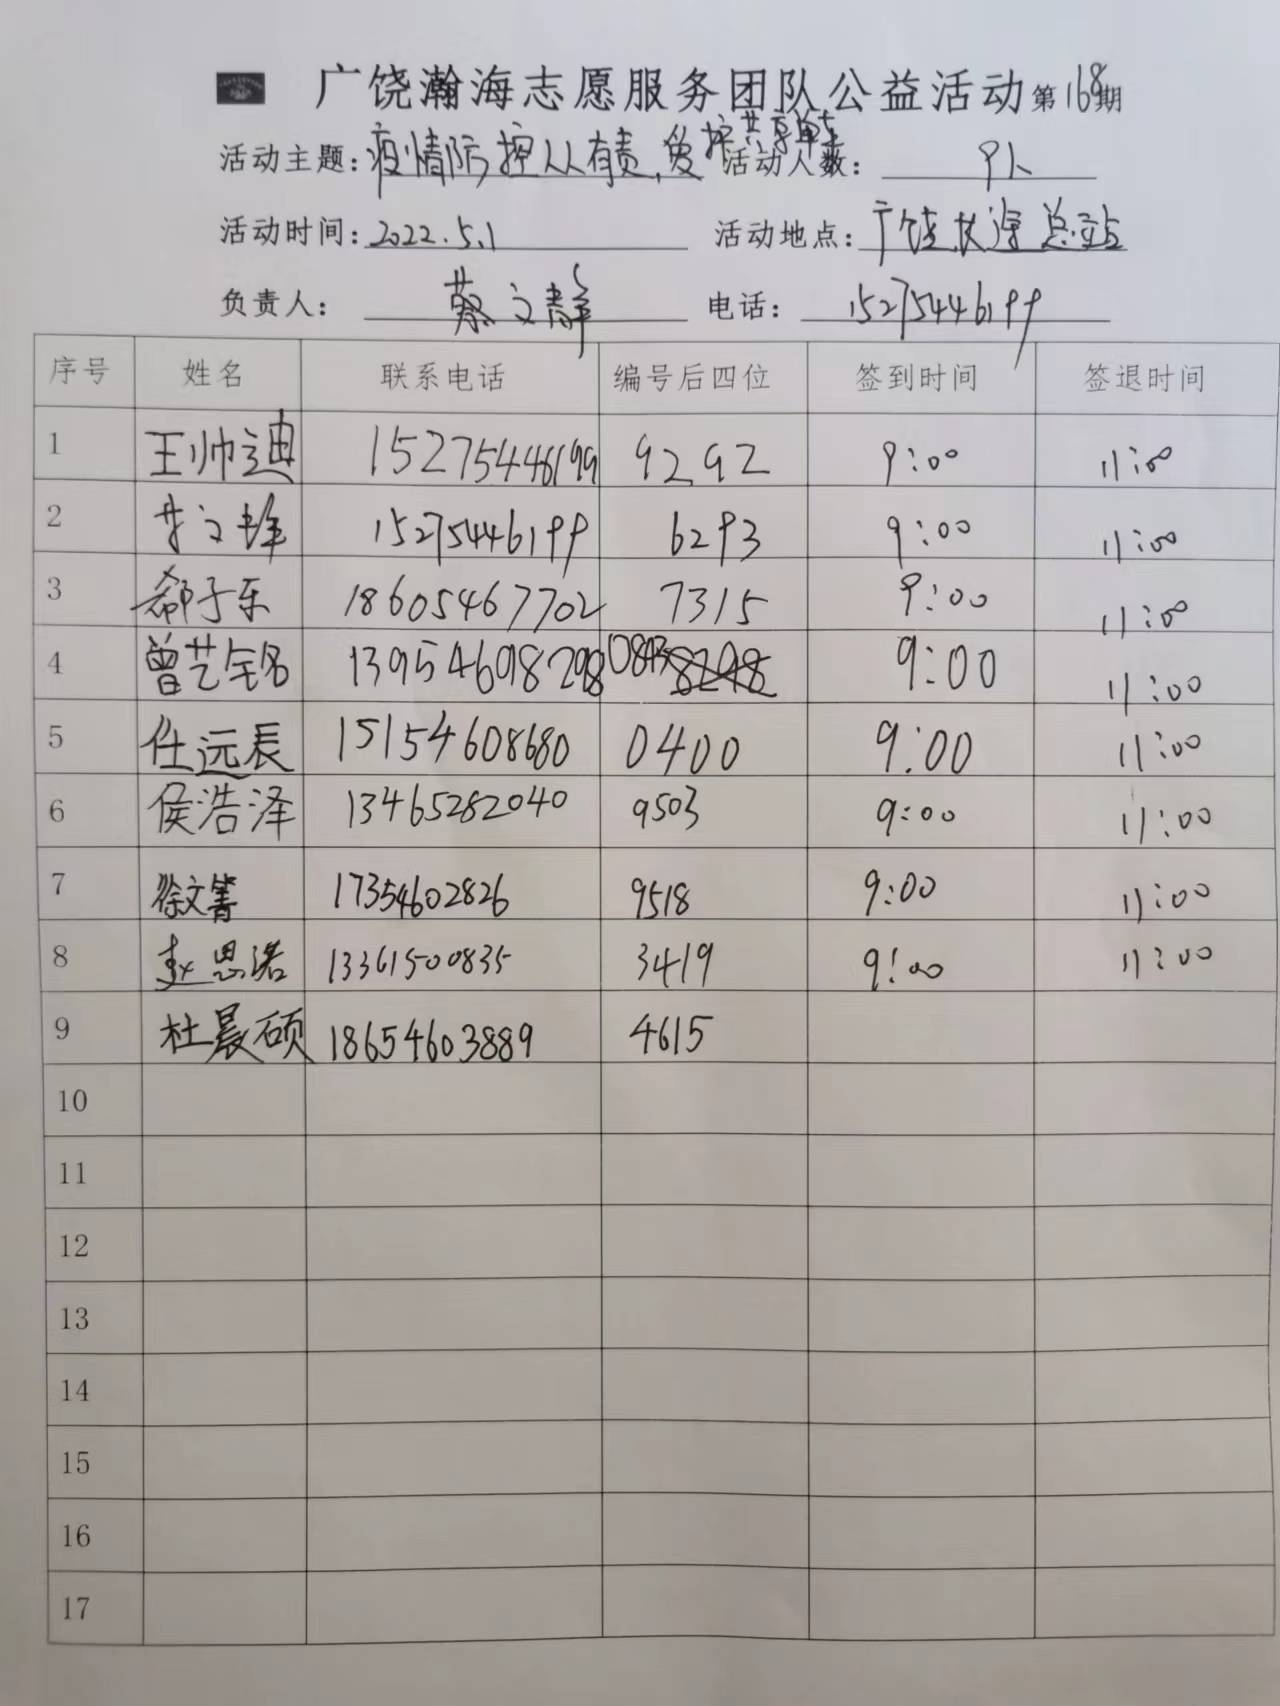 广饶瀚海志愿服务团队公益活动第168期
活动主题：疫情防控人人有责，爱护共享单车 活动人数：9人
活动时间：2022.5.1 活动地点：广饶长途总站
负责人：蔡文静 电话：15275446199
序号 姓名 联系电话 编号后四位 签到时间 签退时间
1 王帅迪 15275446199 9292 9:00 11:00
2 15275446199 6293 9:00 11:00
3 郗子乐 18605467702 7315 9:00 11:00
4 曾艺铭 13954698298 0843 9:00 11:00
5 任远辰 15154608680 0400 9:00 11:00
6 侯浩泽 13465282040 9503 9:00 11:00
7 徐文箐 17354602826 9518 9:00 11:00
8 赵思诺 13361500835 3419 9:00 11:00
9 杜晨硕 18654603889 4615
10
11
12
13
14
15
16
17